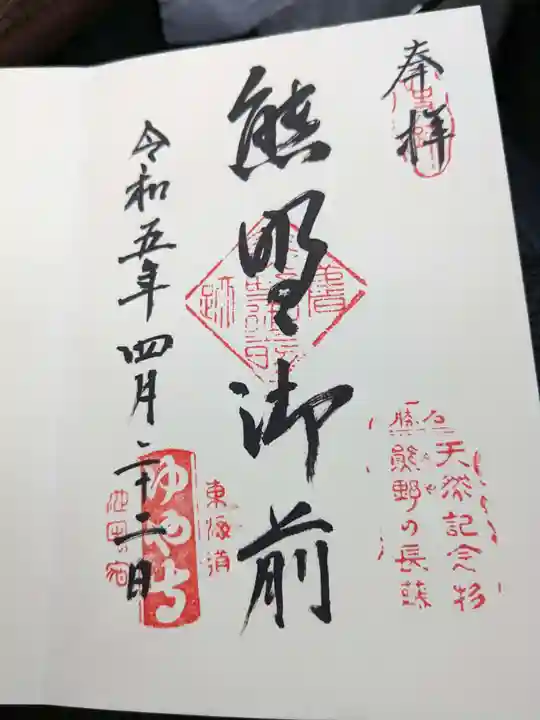 奉拝
天然記念物
熊野の長藤
熊野御前
東海道
ゆや寺
池田宿
令和五年四月二十二日